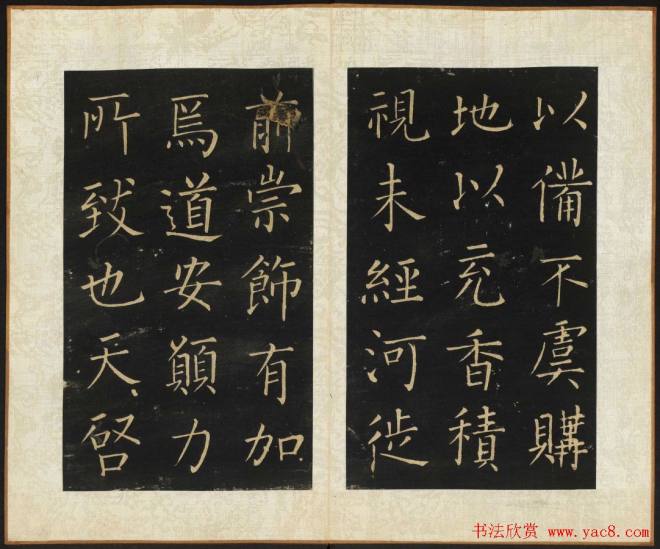 以備不虞購
地以充香積
視未經河徙
前崇飾有加
焉道安顛力
所致也天啓
书法欣赏 www.yac8.com